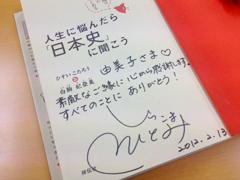 人生に悩んだら
「日本史」
に聞こう
ひすいこたろう
&
白駒妃登美
由美子さま♡
素敵なご縁に心から感謝します。
すべてのことに ありがとう!
ひとみ
2012.2.13
祥伝社